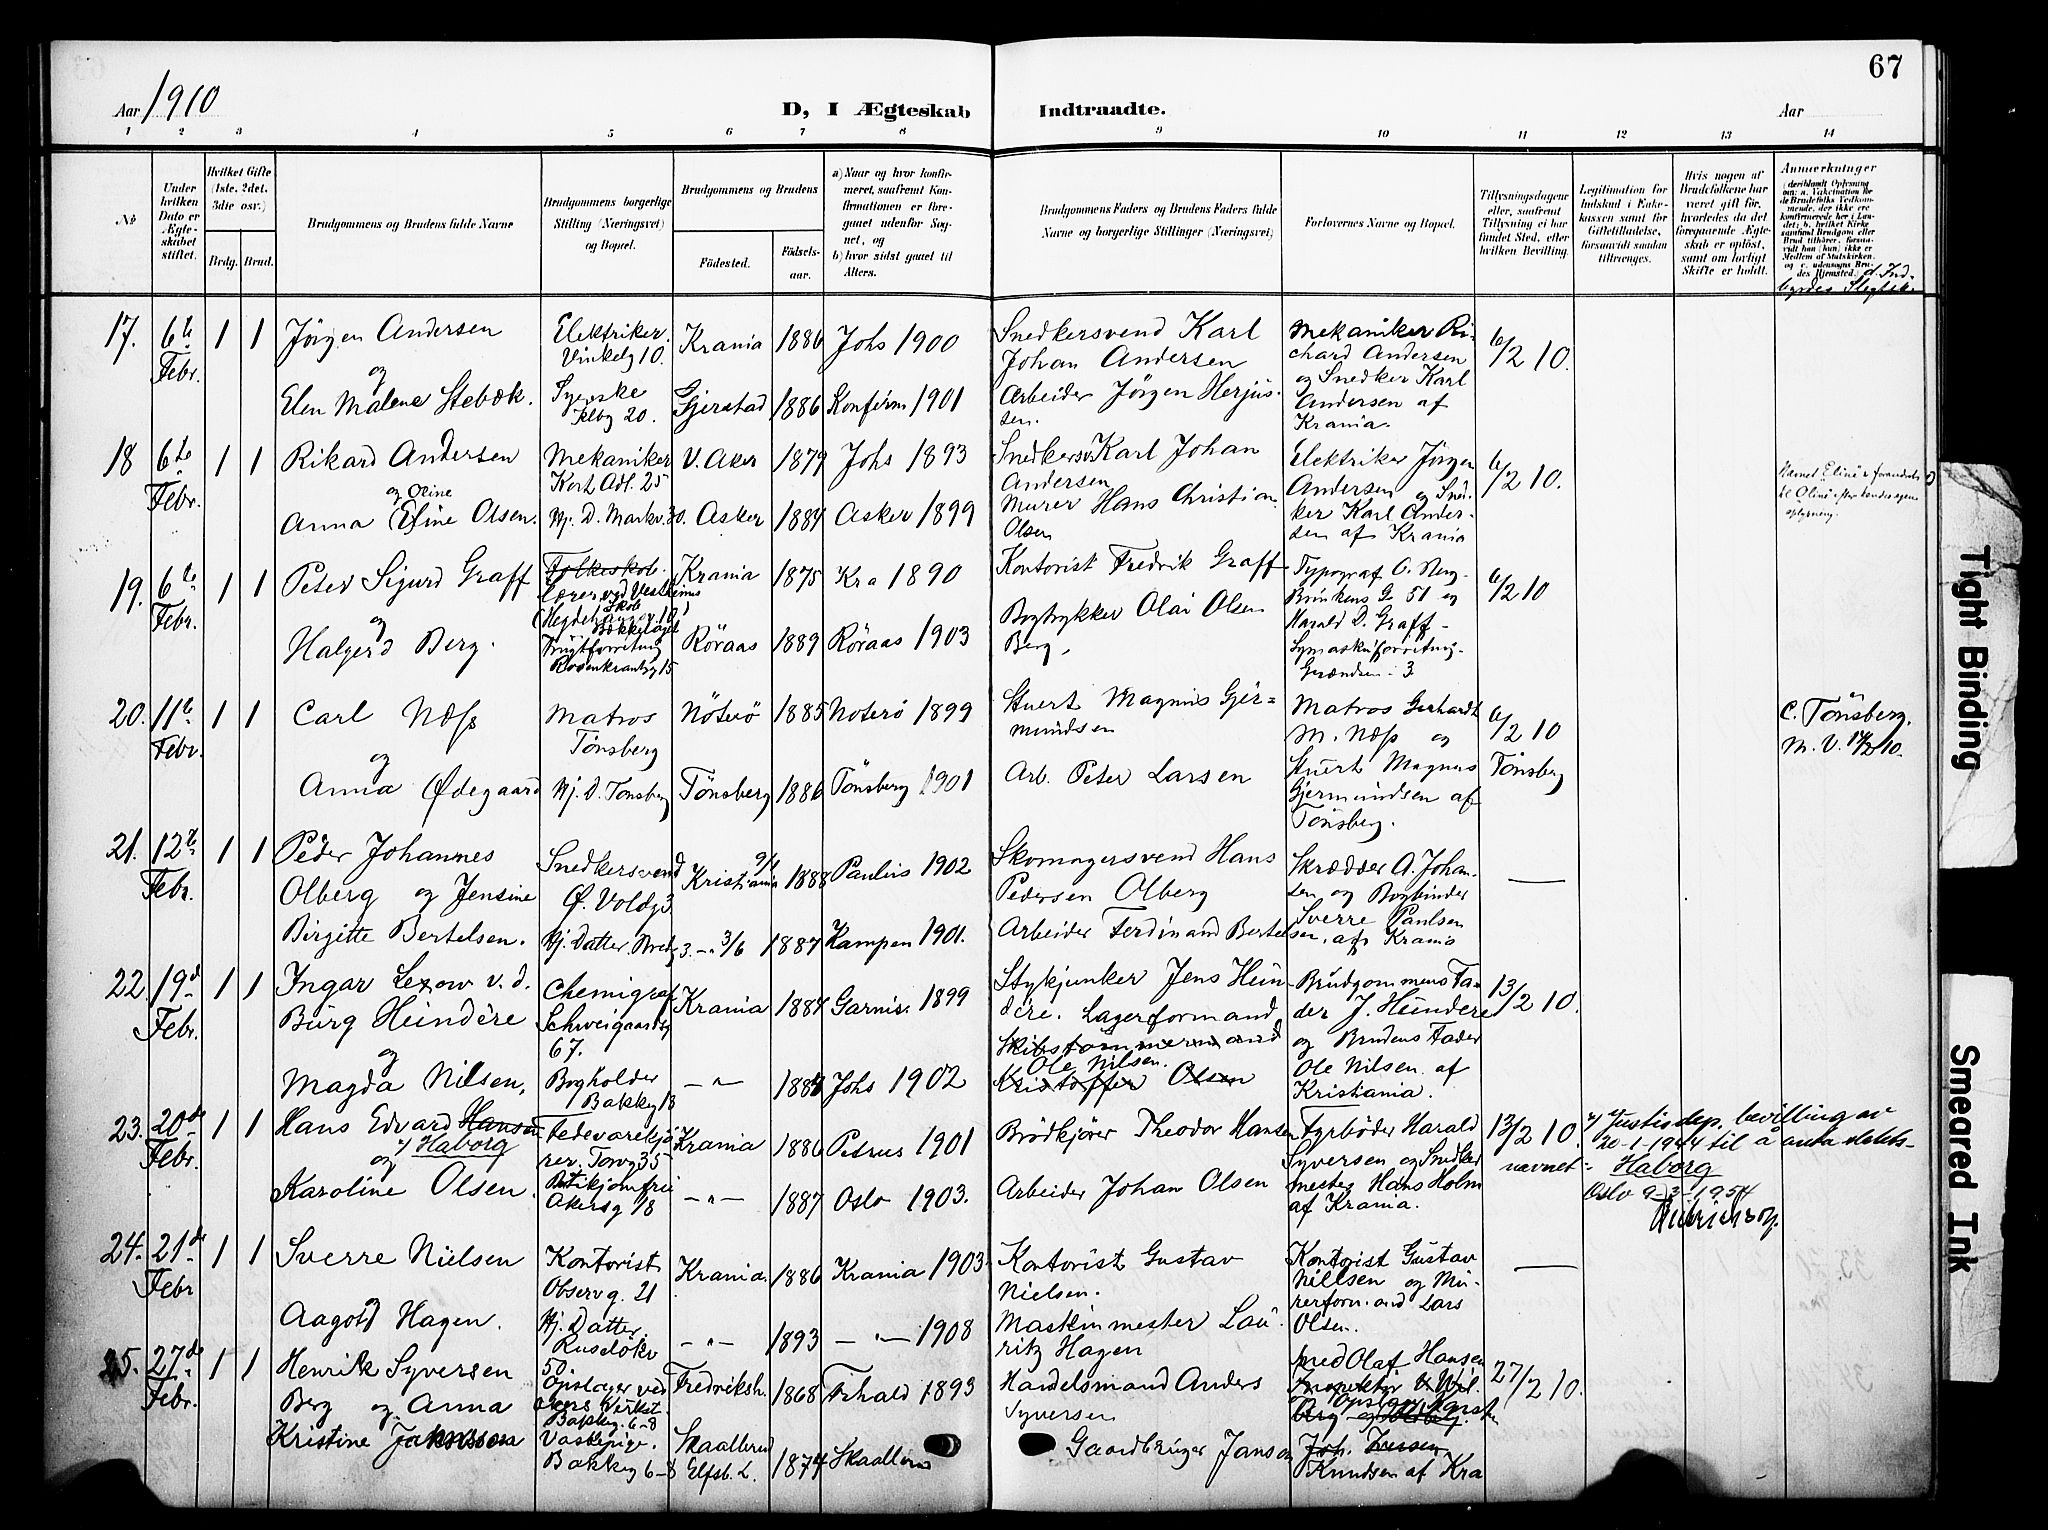 67
Aar 1910
D, I Ægteskab
Indtraadte.
Aar
1 2 3 4 5 6 7 8 9 10 11 12 13 14
No
Under hvilken Dato er Ægteskabet stiftet.
Hvilket Gifte (1ste, 2det, 3die osv.)
Brdg. Brud.
Brudgommens og Brudens fulde Navne
Brudgommens borgerlige Stilling (Næringsvei) og Bopæl.
Brudgommens og Brudens
Fødested.
Fødsels-aar.
a) Naar og hvor konfirmeret, saafremt Konfirmationen er foregaaet udenfor Sognet, og
b) hvor sidst gaaet til Alters.
Brudgommens Faders og Brudens Faders fulde Navne og borgerlige Stillinger (Næringsvei)
Forlovernes Navne og Bopæl.
Tillysningsdagene eller, saafremt Tillysning ei har fundet Sted, efter hvilken Bevilling.
Legitimation for Indskud i Enkekassen samt for Giftetilladelse, forsaavidt saadan tiltrænges.
Hvis nogen af Brudefolkene har været gift før, hvorledes da det foregaaende Ægteskab er opløst, samt om lovligt Skifte er holdt.
Anmerkninger
d. Indbyrdes Slegtsk.
17. 6te Febr. 1 1
Jörgen Andersen
og
Elen Malene Stebæk.
Elektriker. Vinkelg 10.
Syerske
20.
Krania 1886 Johs 1900
Gjerstad 1886 Konfirm 1901
Snedkersvend Karl
Johan Andersen
Arbeider Jörgen Herjussen.
Mekaniker Richard Andersen
og Snedker Karl
Andersen af
Krania.
6/2 10.
18 6te Febr. 1 1
Rikard Andersen
og Oline
Anna Eline Olsen.
Mekaniker
Kort Adl. 25
Hj. D. Markv. 30.
V. Aker 1879 Johs 1893
Asker 1884 Asker 1899
Snedkersv Karl Johan
Andersen
Murer Hans Christian
Olsen
Elektriker Jörgen
Andersen og Snedker Karl Andersen af Krania
6/2 10.
Navnet Eline er forandret
til Oline efter hendes egen
oplysning.
19. 6te Febr. 1 1
Peter Sigurd Graff
og
Halgerd Berg.
Folkeskol.
Lærer ved Vestheims
Skob
Frugtforretning
Rosenkrantzg 15
Krania 1875 Kra 1890
Röraas 1889 Röraas 1903
Kontorist Fredrik Graff
Bogtrykker Olai Olsen
Berg.
Typograf C.
Brinkens G 51 og
Harald D. Graff -
Symaskinforretning.
3
6/2 10
20. 11te Febr. 1 1
Carl Næss
og
Anna Ødegaard
Matros
Tönsberg
Hj. D. Tonsberg
Nöterö 1885 Noterö 1899
Tönsberg 1886 Tönsberg 1901
Stuert Magnus Gjermundsen
Arb. Peter Larsen
Matros Gerhardt
M. Næss og
Stuert Magnus
Gjermundsen af
Tönsberg.
6/2 10
Tönsberg
C. Tönsberg.
M. V. 10.
21. 12te Febr. 1 1
Peder Johannes
Olberg og Jensine
Birgitte Bertelsen.
Snedkersvend
Ø. Voldg 3
Hj. Datter. Bredg 3.
Kristiania 9/1 1888 Paulus 1902
-"- 3/6 1887 Kampen 1901.
Skomagersvend Hans
Pedersen Olberg
Arbeider Ferdinand Bertelsen.
Skrædder A. Johansen og Bogbinder
Sverre Paulsen
af Krania
—
22. 19de Febr. 1 1
Ingar Lexow v. d.
Burg Heindere
og
Magda Nilsen.
Chemigraf
Schweigaardsg
67.
Bogholder
Bakkg 13
Krania 1884 Garnis. 1899
-"- 1884 Johs 1902
Stykjunker Jens Heindere. Lagerformand
Skibstømmermand
Ole Nilsen.
Kristoffer Olsen
Brudgommens Fader J. Heindere
og Brudens Fader
Ole Nilsen. af
Kristiania.
13/2 10.
23. 20de Febr. 1 1
Hans Edvard Hansen
x/ Haborg
og
Karoline Olsen.
Fedevarekjörer. Torvg 35
Butikjomfru
Akersg 78
Krania 1886 Petrus 1901
-"- 1887 Oslo 1903.
Brödkjörer Theodor Hansen
Arbeider Johan Olsen
Fyrböder Harald
Syversen og Snedkermester Hans Holm
af Krania.
13/2 10.
x/ Justisdep. bevilling av
20-1-1944 til å anta slektsnavnet: Haborg
Oslo 9-3-1954
24. 21de Febr 1 1
Sverre Nielsen
og
Aagot Hagen.
Kontorist
Observg. 21
Hj. Datter.
Ruselökv
50
Krania. 1886 Krania 1903.
-"- 1893 -"- 1908
Kontorist Gustav
Nielsen.
Maskinmester Lauritz Hagen
Kontorist Gustav
Nillsen og Murerform. and Lars
Olsen.
—
25. 27de Febr. 1 1
Henrik Syversen
Berg og Anna
Kristine
Opslager ved
Akers Virkst.
Bakkg. 6-8
Vaskepige.
Bakkg 6-8
Fredriksh. 1868 Frhald 1893
Skaallerud
Elfsb. L. 1874
Handelsmand Anders
Syversen
Gaardbruger Janson
med Olaf Hansen
Inspektör
Joh. Iversen
Knudsen af Kra
27/2 10.
Tight Binding
Smeared Ink